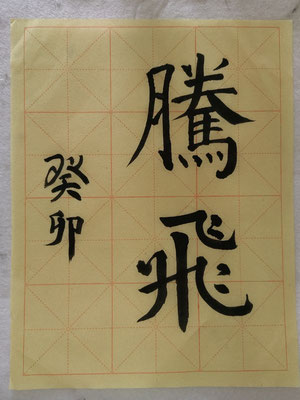 騰飛
癸卯